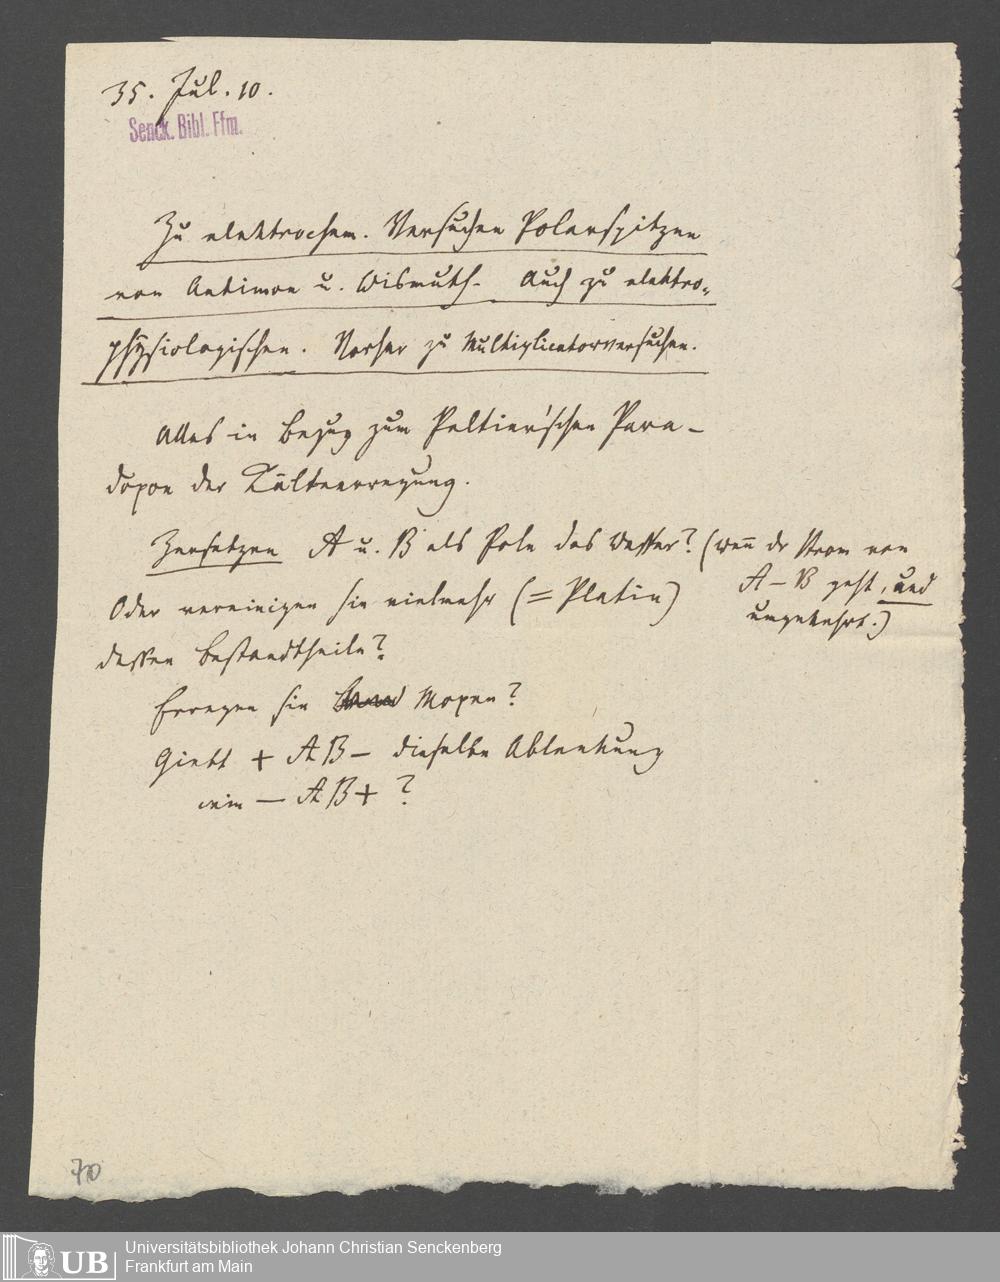 35. Jul. 10.
Senck. Bibl. Ffm.
Zu elektrochem. Versuchen Polarspitzen
von Antimon u. Wismuth. Auch zu elektro-
physiologischen. Vorher zu Multiplicatorversuchen.
Alles in Bezug zum Peltier'schen Para-
doxon der Kälteerregung.
Zersetzen A u. B als Pole das Wasser? (wen̄ dr Strom von
A – B geht, und
umgekehrt.)
Oder vereinigen sie vielmehr (= Platin)
dessen Bestandtheile?
Erregen sie Moxen?
Giebt + AB – dieselbe Ablenkung
wie — AB + ?
70
UB
Universitätsbibliothek Johann Christian Senckenberg
Frankfurt am Main